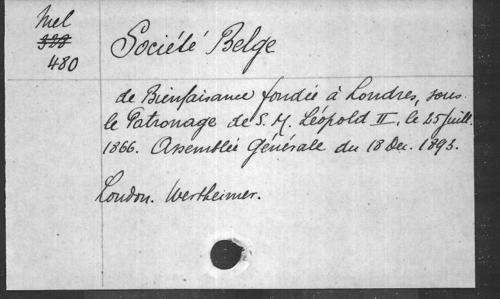 Mel
388
480
Société Belge
de Bienfaisance fondée à Londres, sous
le Patronage de S. M. Léopold II. le 25 Juill.
1866. Assemblée Générale du 18 Dec. 1893.
London. Wertheimer.